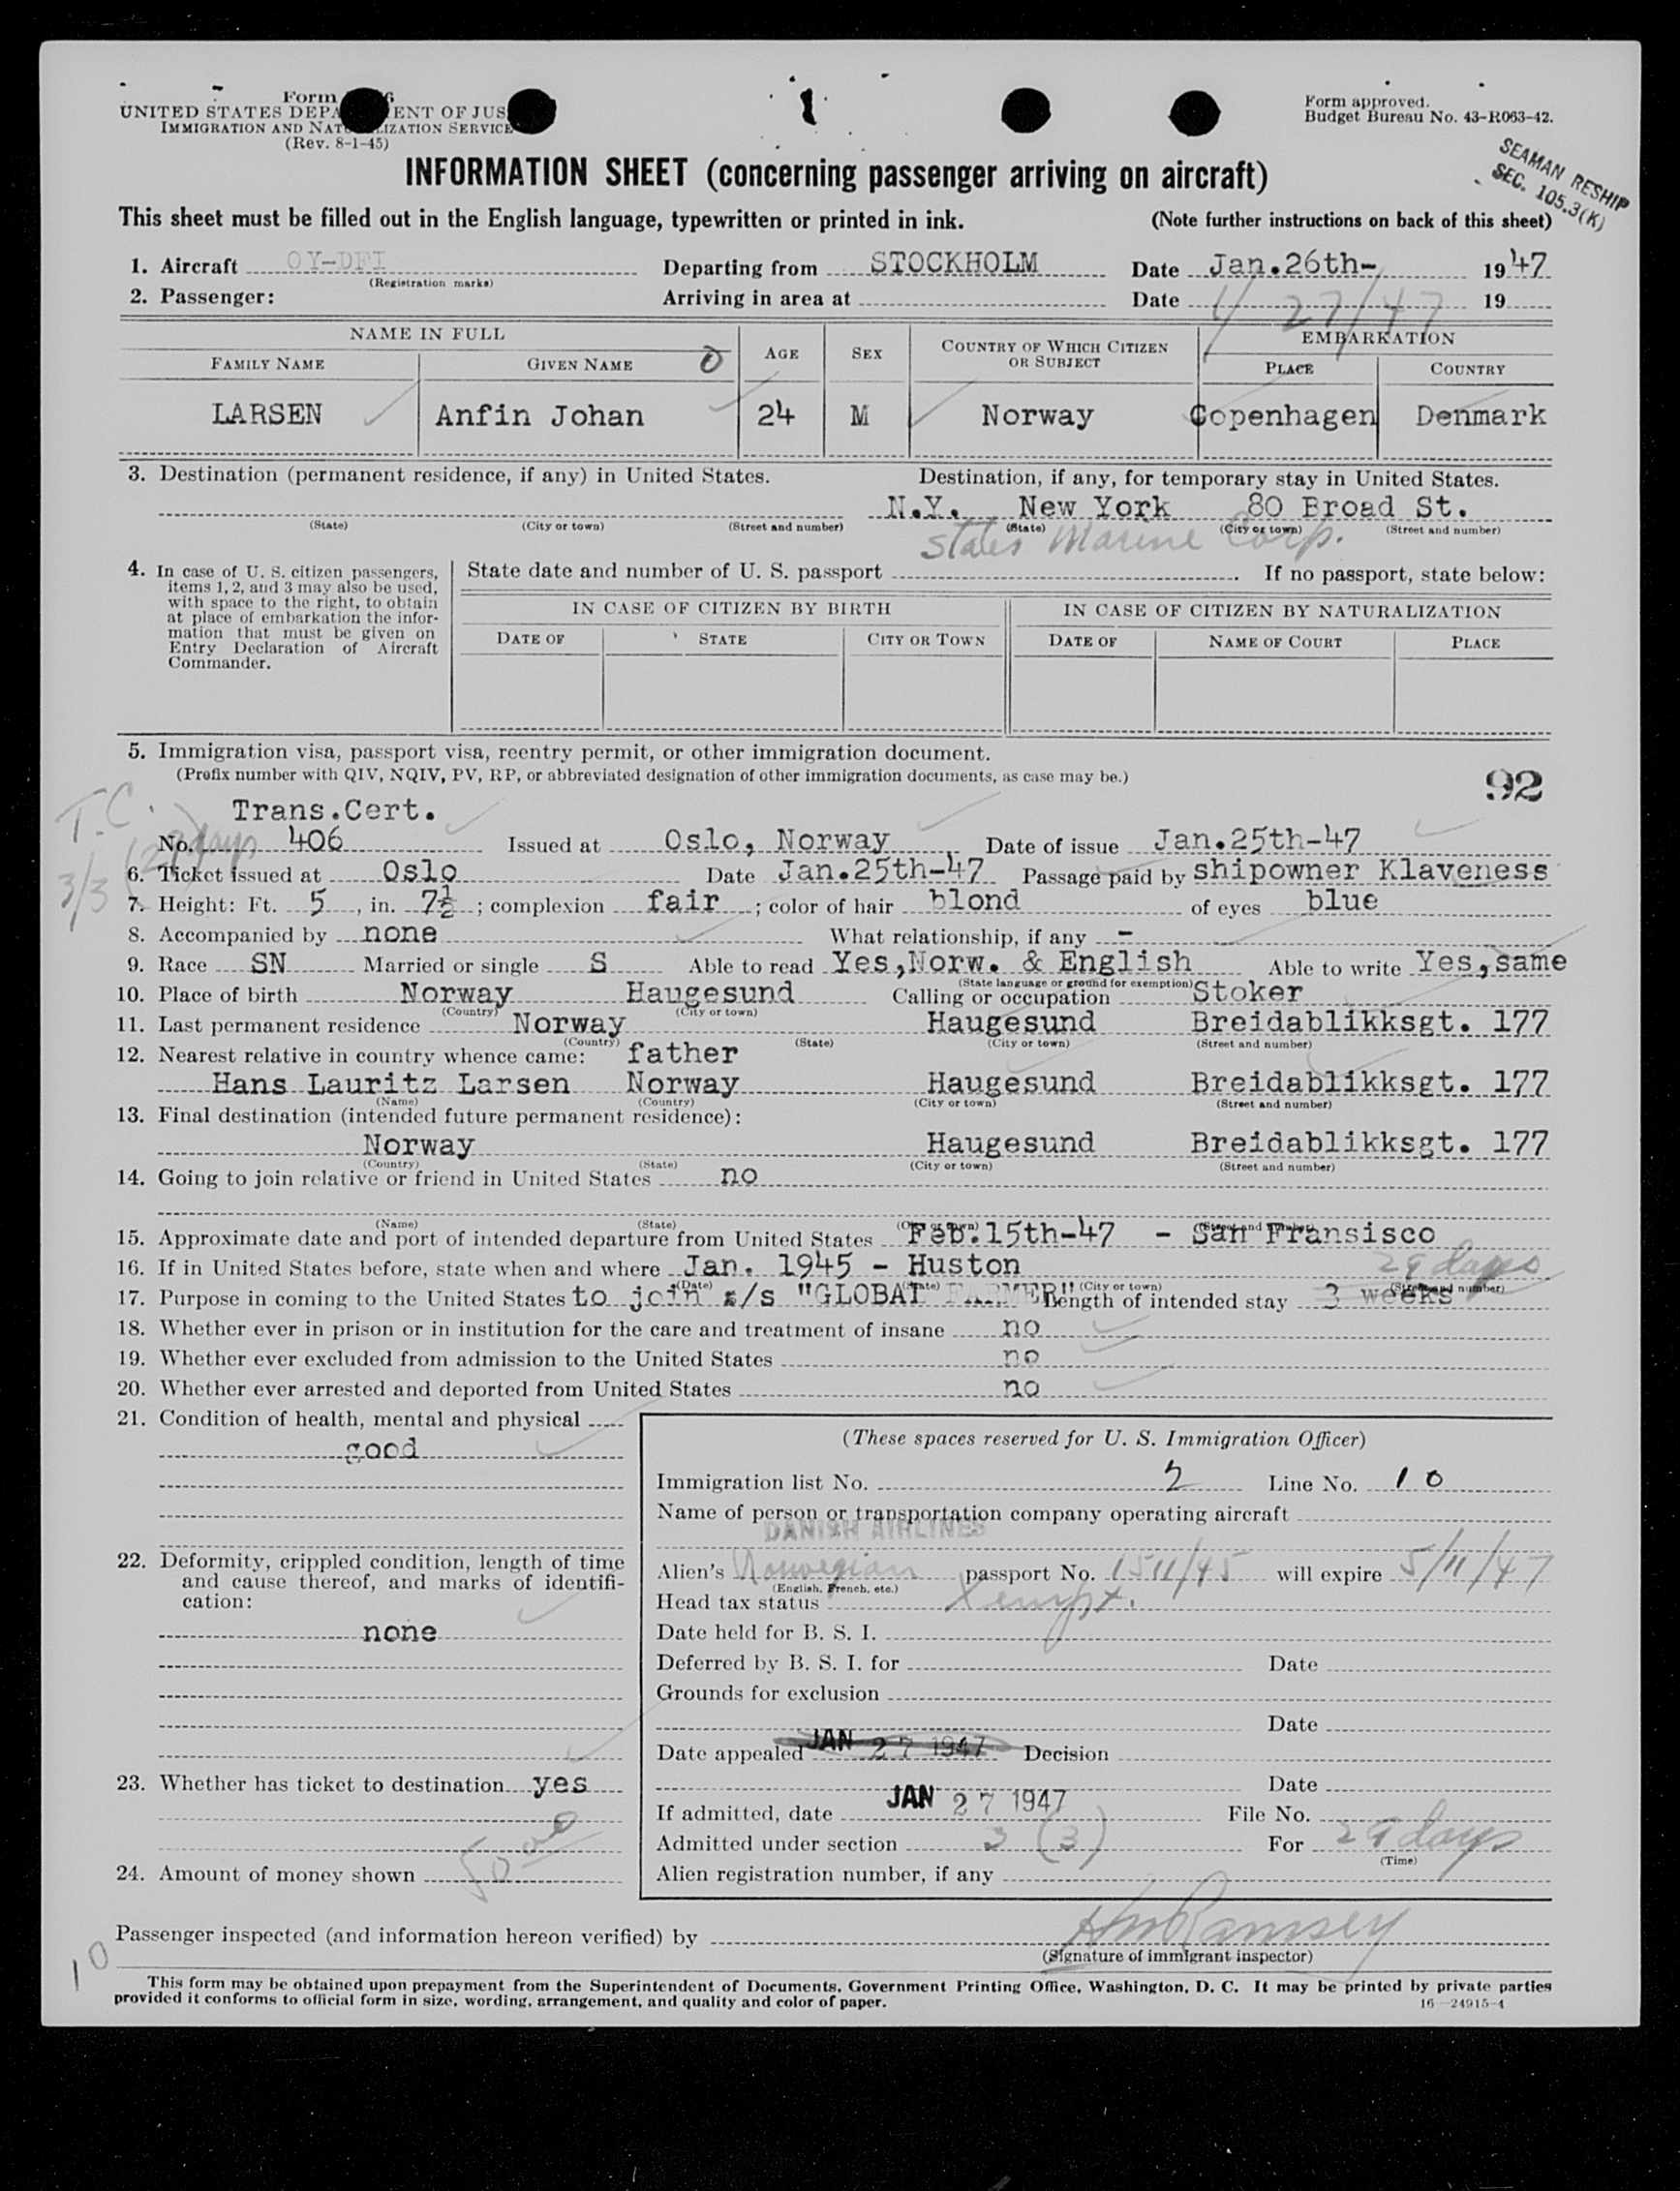 Form
UNITED STATES DEPA ENT OF JUS
IMMIGRATION AND NATU LIZATION SERVICE
(Rev. 8-1-45)
Form approved.
Budget Bureau No. 43-R063-42.
SEAMAN RESHIP
SEC. 105.3(K)
INFORMATION SHEET (concerning passenger arriving on aircraft)
This sheet must be filled out in the English language, typewritten or printed in ink. (Note further instructions on back of this sheet)
1. Aircraft OY-DFI Departing from STOCKHOLM Date Jan.26th- 1947
(Registration marks)
2. Passenger: Arriving in area at Date 1/27/47 19
NAME IN FULL AGE SEX COUNTRY OF WHICH CITIZEN OR SUBJECT EMBARKATION
FAMILY NAME GIVEN NAME PLACE COUNTRY
LARSEN Anfin Johan 24 M Norway Copenhagen Denmark
3. Destination (permanent residence, if any) in United States. Destination, if any, for temporary stay in United States.
N.Y. New York 80 Broad St.
(State) (City or town) (Street and number) (State) (City or town) (Street and number)
States Marine Corp.
4. In case of U. S. citizen passengers, items 1, 2, and 3 may also be used, with space to the right, to obtain at place of embarkation the information that must be given on Entry Declaration of Aircraft Commander.
State date and number of U. S. passport . If no passport, state below:
IN CASE OF CITIZEN BY BIRTH IN CASE OF CITIZEN BY NATURALIZATION
DATE OF STATE CITY OR TOWN DATE OF NAME OF COURT PLACE
5. Immigration visa, passport visa, reentry permit, or other immigration document.
(Prefix number with QIV, NQIV, PV, RP, or abbreviated designation of other immigration documents, as case may be.)
92
T.C.
Trans.Cert.
No. 406 Issued at Oslo, Norway Date of issue Jan.25th-47
(29 days)
3/3
6. Ticket issued at Oslo Date Jan.25th-47 Passage paid by shipowner Klaveness
7. Height: Ft. 5, in. 7½; complexion fair; color of hair blond of eyes blue
8. Accompanied by none What relationship, if any -
9. Race SN Married or single S Able to read Yes,Norw. & English Able to write Yes,same
(State language or ground for exemption)
10. Place of birth Norway Haugesund Calling or occupation Stoker
(Country) (City or town)
11. Last permanent residence Norway Haugesund Breidablikksgt. 177
(Country) (State) (City or town) (Street and number)
12. Nearest relative in country whence came: father
Hans Lauritz Larsen Norway Haugesund Breidablikksgt. 177
(Name) (Country) (City or town) (Street and number)
13. Final destination (intended future permanent residence):
Norway Haugesund Breidablikksgt. 177
(Country) (State) (City or town) (Street and number)
14. Going to join relative or friend in United States no
(Name) (State) (City or town) (Street and number)
15. Approximate date and port of intended departure from United States Feb.15th-47 - San Fransisco
16. If in United States before, state when and where Jan. 1945 - Huston
29 days
(Date) (State) (City or town) (Street and number)
17. Purpose in coming to the United States to join s/s "GLOBAL FARMER" Length of intended stay 3 weeks
18. Whether ever in prison or in institution for the care and treatment of insane no
19. Whether ever excluded from admission to the United States no
20. Whether ever arrested and deported from United States no
21. Condition of health, mental and physical
good
22. Deformity, crippled condition, length of time and cause thereof, and marks of identification:
none
23. Whether has ticket to destination yes
24. Amount of money shown 50 00
(These spaces reserved for U. S. Immigration Officer)
Immigration list No. 2 Line No. 10
Name of person or transportation company operating aircraft
DANISH AIRLINES
Alien's Norwegian passport No. 1511/45 will expire 5/11/47
(English, French, etc.)
Head tax status Xempt.
Date held for B. S. I.
Deferred by B. S. I. for Date
Grounds for exclusion
Date
Date appealed JAN 27 1947 Decision
Date
If admitted, date JAN 27 1947 File No.
Admitted under section 3 (3) For 29 days
(Time)
Alien registration number, if any
Passenger inspected (and information hereon verified) by HM Ramsey
(Signature of immigrant inspector)
10
This form may be obtained upon prepayment from the Superintendent of Documents, Government Printing Office, Washington, D. C. It may be printed by private parties
provided it conforms to official form in size, wording, arrangement, and quality and color of paper.
16—24915-4